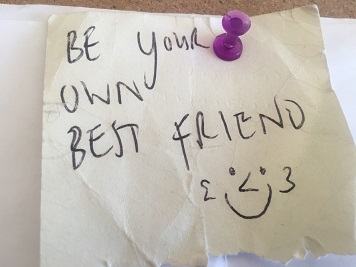 BE YOUR
OWN
BEST FRIEND